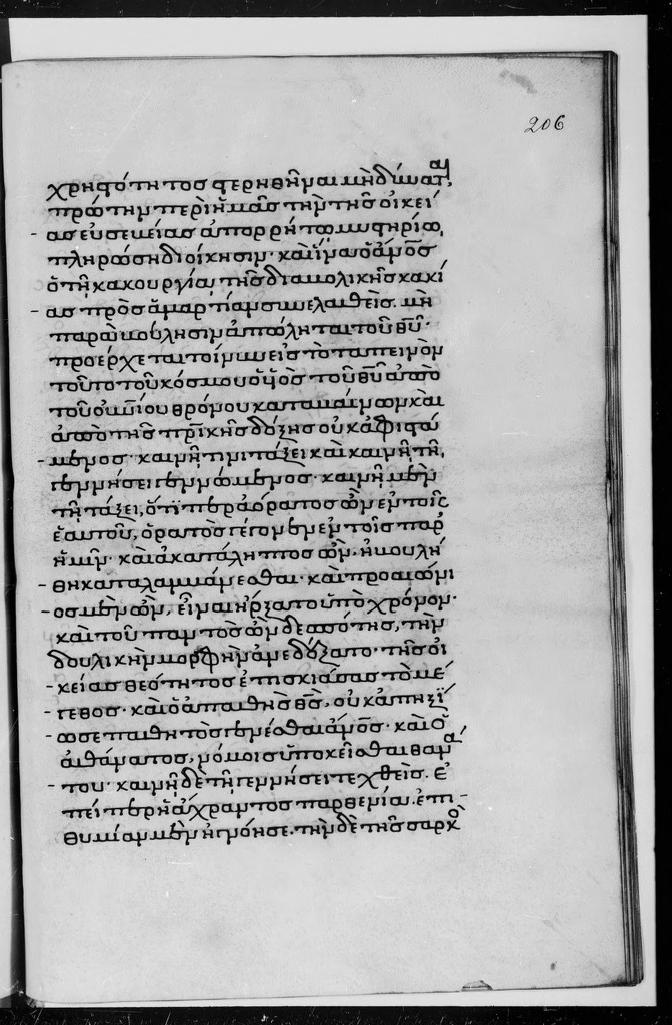 206
χρηστότητος στερηθῆναι μὴ δύνατ(αι),
πρώτην περὶ ἡμᾶς τὴν τῆς οἰκεί
ας εὐσεβείας ἀπορρήτω μυστηρίω,
πληρώση διοίκησιν· καὶ ἵνα ὁ ἄνο̅ς
ὁ τῆ κακουργία, τῆς διαβολικῆς κακί
ας πρὸς ἁμαρτίαν συνελαθεὶς. μὴ
παρὰ βούλησιν ἀπόληται τοῦ θυ̅·
προέρχεται τοίνυν εἰς τὸ ταπεινὸν
τοῦτο τοῦ κόσμου ὁ υἱὸς τοῦ θυ̅ ἀπὸ
τοῦ οὐνίου θρόνου καταβαίνων καὶ
ἀπὸ τῆς πρικῆς δόξης οὐκ ἀφιστά
μενος· καινῆ τινι τάξει καὶ καινῆ τῆ,
γεννήσει γεννώμενος· καινῆ μὲν
τῆ τάξει, ὅτιπερ ἀόρατος ὢν ἐν τοῖς
ἑαυτοῦ, ὁρατὸς γέγονεν ἐν τοῖς παρ
ἡμῖν· καὶ ἀκατάληπτος ὢν. ἠβουλή
θη καταλαμβάνεσθαι· καὶ προαιώνι
ος μὲν ὢν, εἶναι ἤρξατο ὑπὸ χρόνον·
καὶ τοῦ παντὸς ὢν δεσπότης, τὴν
δουλικὴν μορφὴν ἀνεδέξατο· τῆς οἰ
κείας θεότητος ἐπισκιάσας τὸ μέ
γεθος· καὶ ὁ ἀπαθὴς θς̅, οὐκ ἀπηξί
ωσε παθητὸς γενέσθαι ἄνο̅ς· καὶ ὁ
ἀθάνατος, νόμοις ὑποκεῖσθαι θανά
του· καινῆ δὲ τῆ γεννήσει τεχθεὶς. ἐ
πείπερ ἡ ἄχραντος παρθενία, ἐπι
θυμίαν μὲν ἠγνόησε. τὴν δὲ τῆς σαρκὸ